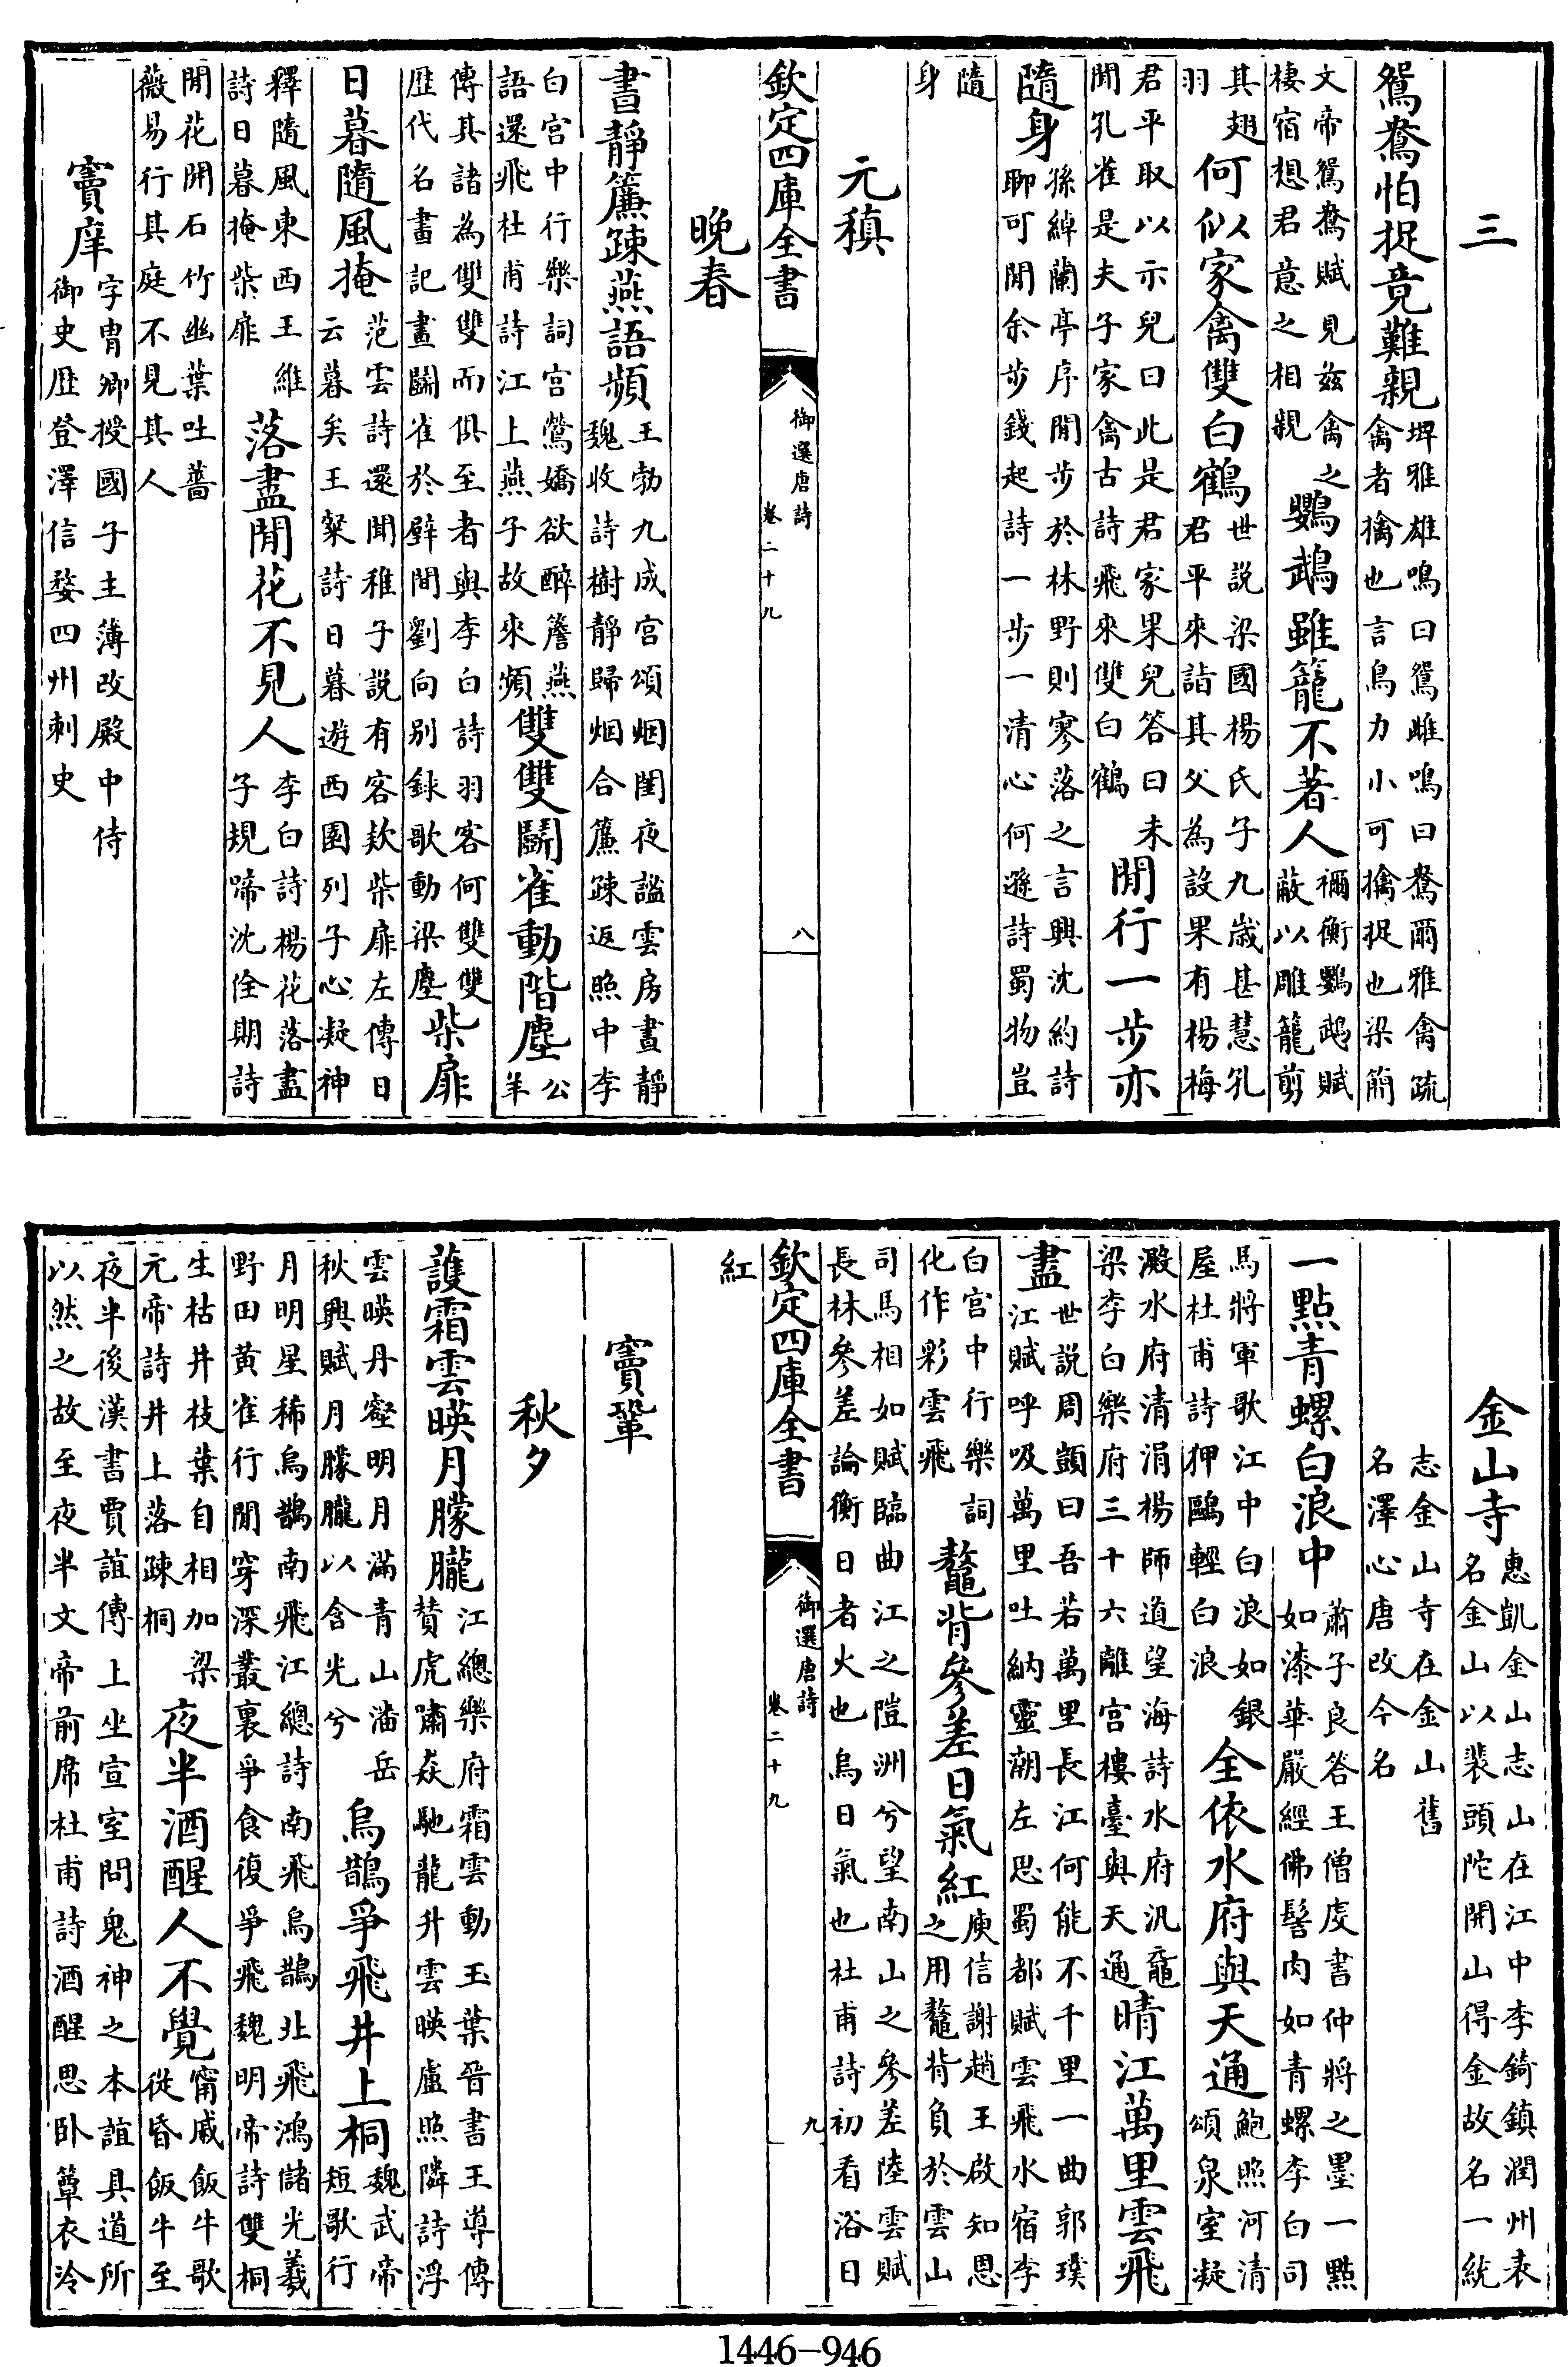 三
鴛鴦怕捉竟難親埤雅雄鳴曰鴛雌鳴曰鴦爾雅禽疏禽者擒也言鳥力小可擒捉也梁簡
文帝鴛鴦賦見兹禽之棲宿想君意之相親鸚鵡雖籠不著人禰衡鸚鵡賦蔽以雕籠剪
其翅羽何似家禽雙白鶴世説梁國楊氏子九歳甚慧孔君平來詣其父為設果有楊梅
君平取以示兒曰此是君家果兒答曰未聞孔雀是夫子家禽古詩飛來雙白鶴閒行一步亦
隨身孫綽蘭亭序閒步於林野則寥落之言興沈約詩聊可閒余步錢起詩一步一清心何遜詩蜀物豈
隨身
元稹
欽定四庫全書
御選唐詩
卷二十九
八
晚春
晝静簾疎燕語頻王勃九成宫頌烟閨夜謐雲房晝静魏收詩樹静歸烟合簾疎返照中李
白宫中行樂詞宫鶯嬌欲醉簷燕語還飛杜甫詩江上燕子故來頻雙雙鬭雀動階塵公羊
傳其諸為雙雙而俱至者與李白詩羽客何雙雙歴代名畫記畫鬭雀於壁間劉向别録歌動梁塵柴扉
日暮隨風掩范雲詩還聞稚子説有客欵柴扉左傳日云暮矣王粲詩日暮遊西園列子心凝神
釋隨風東西王維詩日暮掩柴扉落盡閒花不見人李白詩楊花落盡子規啼沈佺期詩
閒花開石竹幽葉吐薔薇易行其庭不見其人
竇庠字胄卿授國子主簿改殿中侍御史歴登澤信婺四州刺史
金山寺惠凱金山志山在江中李錡鎮潤州表名金山以裴頭陀開山得金故名一統
志金山寺在金山舊名澤心唐改今名
一點青螺白浪中蕭子良答王僧䖍書仲將之墨一點如漆華嚴經佛髻肉如青螺李白司
馬將軍歌江中白浪如銀屋杜甫詩狎鷗輕白浪全依水府與天通鮑照河清頌泉室凝
澱水府清涓楊師道望海詩水府汎黿梁李白樂府三十六離宫樓臺與天通晴江萬里雲飛
盡世説周顗曰吾若萬里長江何能不千里一曲郭璞江賦呼吸萬里吐納靈潮左思蜀都賦雲飛水宿李
白宫中行樂詞化作彩雲飛鼇背參差日氣紅庾信謝趙王啟知恩之用鼇背負於雲山
司馬相如賦臨曲江之隑洲兮望南山之參差陸雲賦長林參差論衡日者火也烏日氣也杜甫詩初看浴日
欽定四庫全書
御選唐詩
卷二十九
九
紅
竇鞏
秋夕
護霜雲暎月朦朧江總樂府霜雲動玉葉晉書王導傳贊虎嘯猋馳龍升雲暎盧照隣詩浮
雲暎丹壑明月滿青山潘岳秋興賦月朦朧以含光兮烏鵲爭飛井上桐魏武帝短歌行
月明星稀烏鵲南飛江總詩南飛烏鵲北飛鴻儲光羲野田黄雀行閒穿深叢裏爭食復爭飛魏明帝詩雙桐
生枯井枝葉自相加梁元帝詩井上落疎桐夜半酒醒人不覺甯戚飯牛歌從昏飯牛至
夜半後漢書賈誼傳上坐宣室問鬼神之本誼具道所以然之故至夜半文帝前席杜甫詩酒醒思卧簟衣冷
1446-946